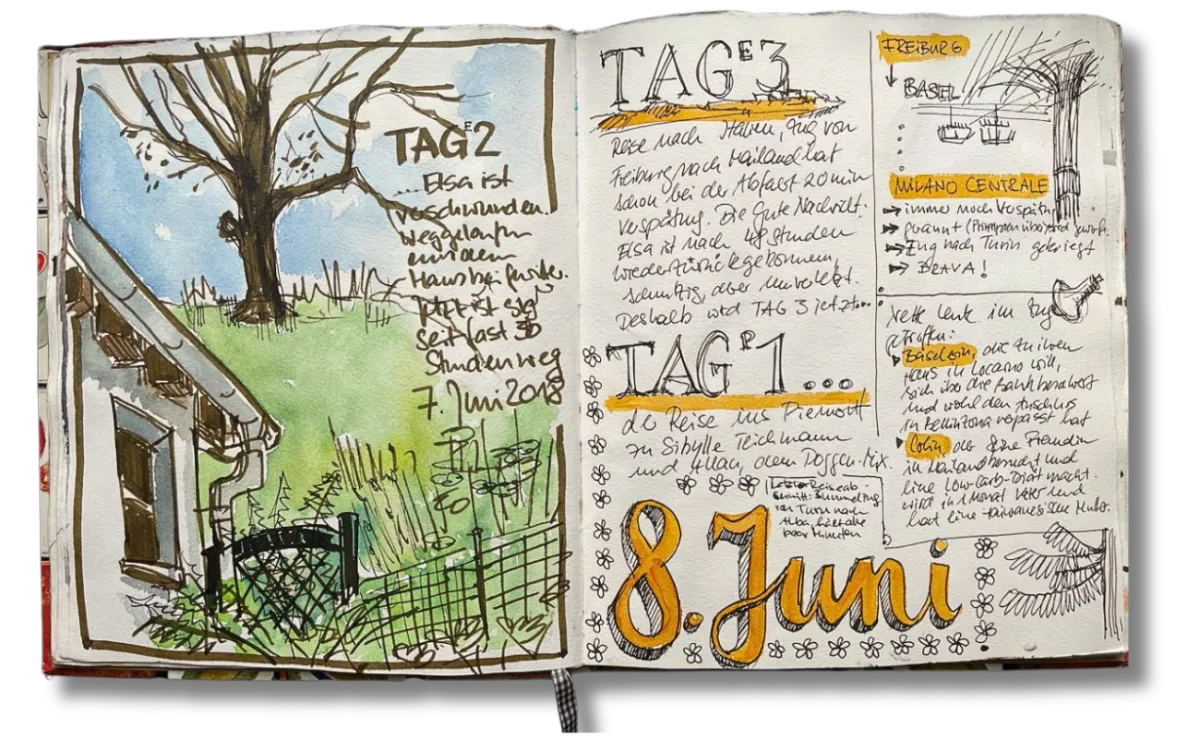 TAGE2
... Elsa ist
verschwunden.
weggelaufen
aus dem
Haus bei
Jetzt ist sie
seit fast 30
Stunden weg
7. Juni 2018
TAGE3
Reise nach Italien, Zug von
Freiburg nach Mailand hat
schon bei der Abfahrt 20 min
Verspätung. Die Gute Nachricht:
Elsa ist nach 48 Stunden
wieder zurückgekommen,
schmutzig, aber unverletzt.
Deshalb wird TAG 3 jetzt zu...
TAGR1...
der Reise ins Piemont
zu Sibylle Teichmann
und Allan, dem Doggen-Mix.
Letzter Reiseab-
schnitt: Bummelzug
von Turin nach
Alba, hält alle
paar Minuten
8. Juni
FREIBURG
BASEL
MILANO CENTRALE
immer noch Verspätg
gerannt
Zug nach Turin gekriegt
BRAVA!
Nette Leute im Zug
getroffen:
die zu ihrem
Haus in Locarno will,
sich über die Bahn beschwert
und wohl den Anschluss
in Bellinzona verpasst hat
Colin, der seine Freundin
in Mailand besucht und
eine Low-Carb-Diät macht.
wird in 1 Monat Vater und
hat eine taiwanesische Mutter.